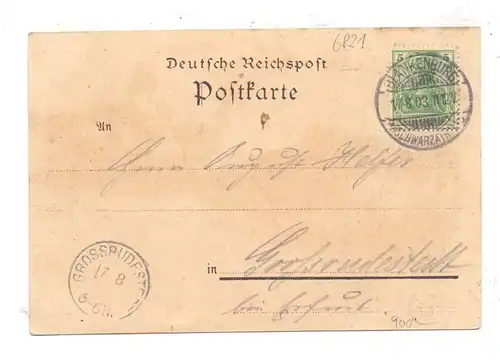 6821
5
BLANKENBURG
(THÜR)
17.8.03
(SCHWARZATH
Deutsche Reichspost
Postkarte
An
Herrn August
in Großrudestedt
bei Erfurt
GROSSRUDESTE
17 8
900